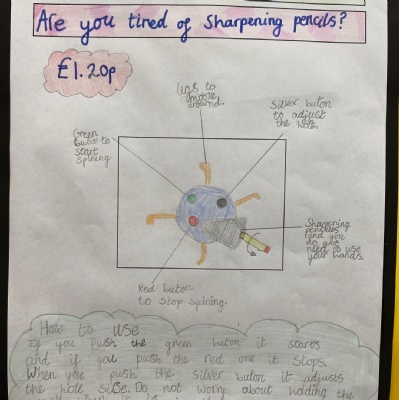 Are you tired of sharpening pencils?
£1.20p
legs to
moove
around.
Silver buton
to adjust
the hole.
Green
buton to
start
spining
Sharpning
pencles
and you
do not
need to use
your hands.
Red buton
to stop spining.
How to use
If you push the green buton it starts
and if you push the red one it stops.
When you push the silver buton it adjusts
the hole size. Do not worry about holding the